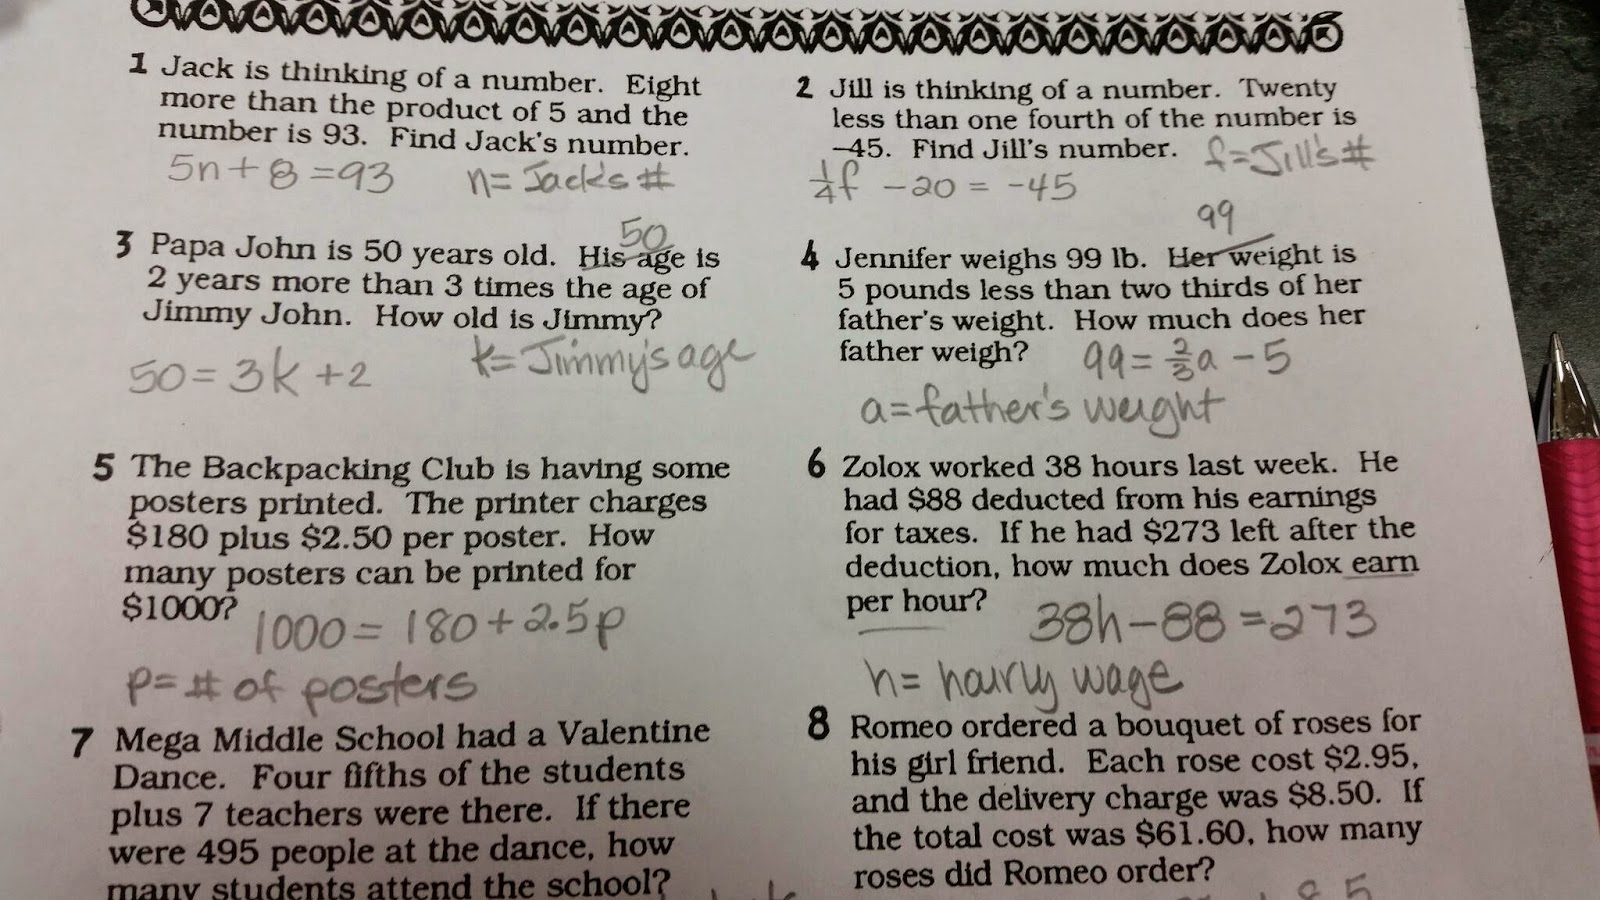 1 Jack is thinking of a number. Eight
more than the product of 5 and the
number is 93. Find Jack's number.
5n + 8 = 93 n = Jack's #
2 Jill is thinking of a number. Twenty
less than one fourth of the number is
-45. Find Jill's number. f = Jill's #
1/4 f - 20 = -45
50
3 Papa John is 50 years old. His age is
2 years more than 3 times the age of
Jimmy John. How old is Jimmy?
50 = 3k + 2 k = Jimmy's age
99
4 Jennifer weighs 99 lb. Her weight is
5 pounds less than two thirds of her
father's weight. How much does her
father weigh? 99 = 2/3 a - 5
a = father's weight
5 The Backpacking Club is having some
posters printed. The printer charges
$180 plus $2.50 per poster. How
many posters can be printed for
$1000? 1000 = 180 + 2.5p
p = # of posters
6 Zolox worked 38 hours last week. He
had $88 deducted from his earnings
for taxes. If he had $273 left after the
deduction, how much does Zolox earn
per hour? 38h - 88 = 273
h = hourly wage
7 Mega Middle School had a Valentine
Dance. Four fifths of the students
plus 7 teachers were there. If there
were 495 people at the dance, how
many students attend the school?
8 Romeo ordered a bouquet of roses for
his girl friend. Each rose cost $2.95,
and the delivery charge was $8.50. If
the total cost was $61.60, how many
roses did Romeo order?